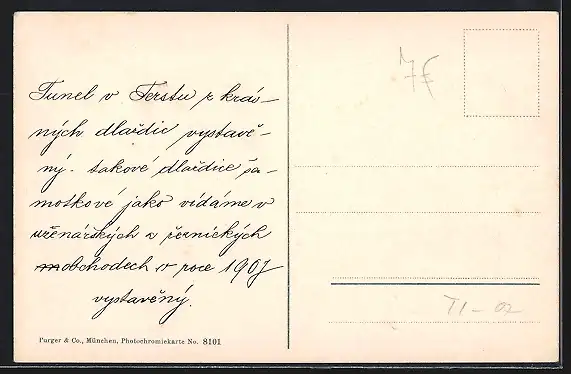 Tunel v Terstu z krás-
ných dlaždic vystavě-
ný. takové dlaždice ša-
motkové jako vídáme v
uzenářských a řeznických
obchodech v roce 1907
vystavěný.
Purger & Co., München, Photochromiekarte No. 8101
7€
TI - 02